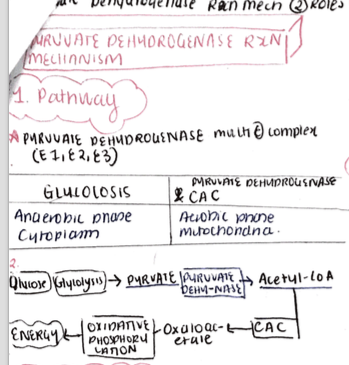 Dehydrogenase Rxn mech ② ROLES
PYRUVATE DEHYDROGENASE RXN
MECHANISM
1. Pathway
PYRUVATE DEHYDROGENASE multi Ⓔ complex
(E1, E2, E3)
GLYCOLOSIS
PYRUVATE DEHYDROGENASE
& CAC
Anaerobic phase
Cytoplasm
Aerobic phase
mitochondria.
2.
Glucose Glycolysis → PYRVATE PYRUVATE DEHY-NASE → Acetyl-CoA
ENERGY ← OXIDATIVE PHOSPHORYLATION - Oxaloacetate ← CAC